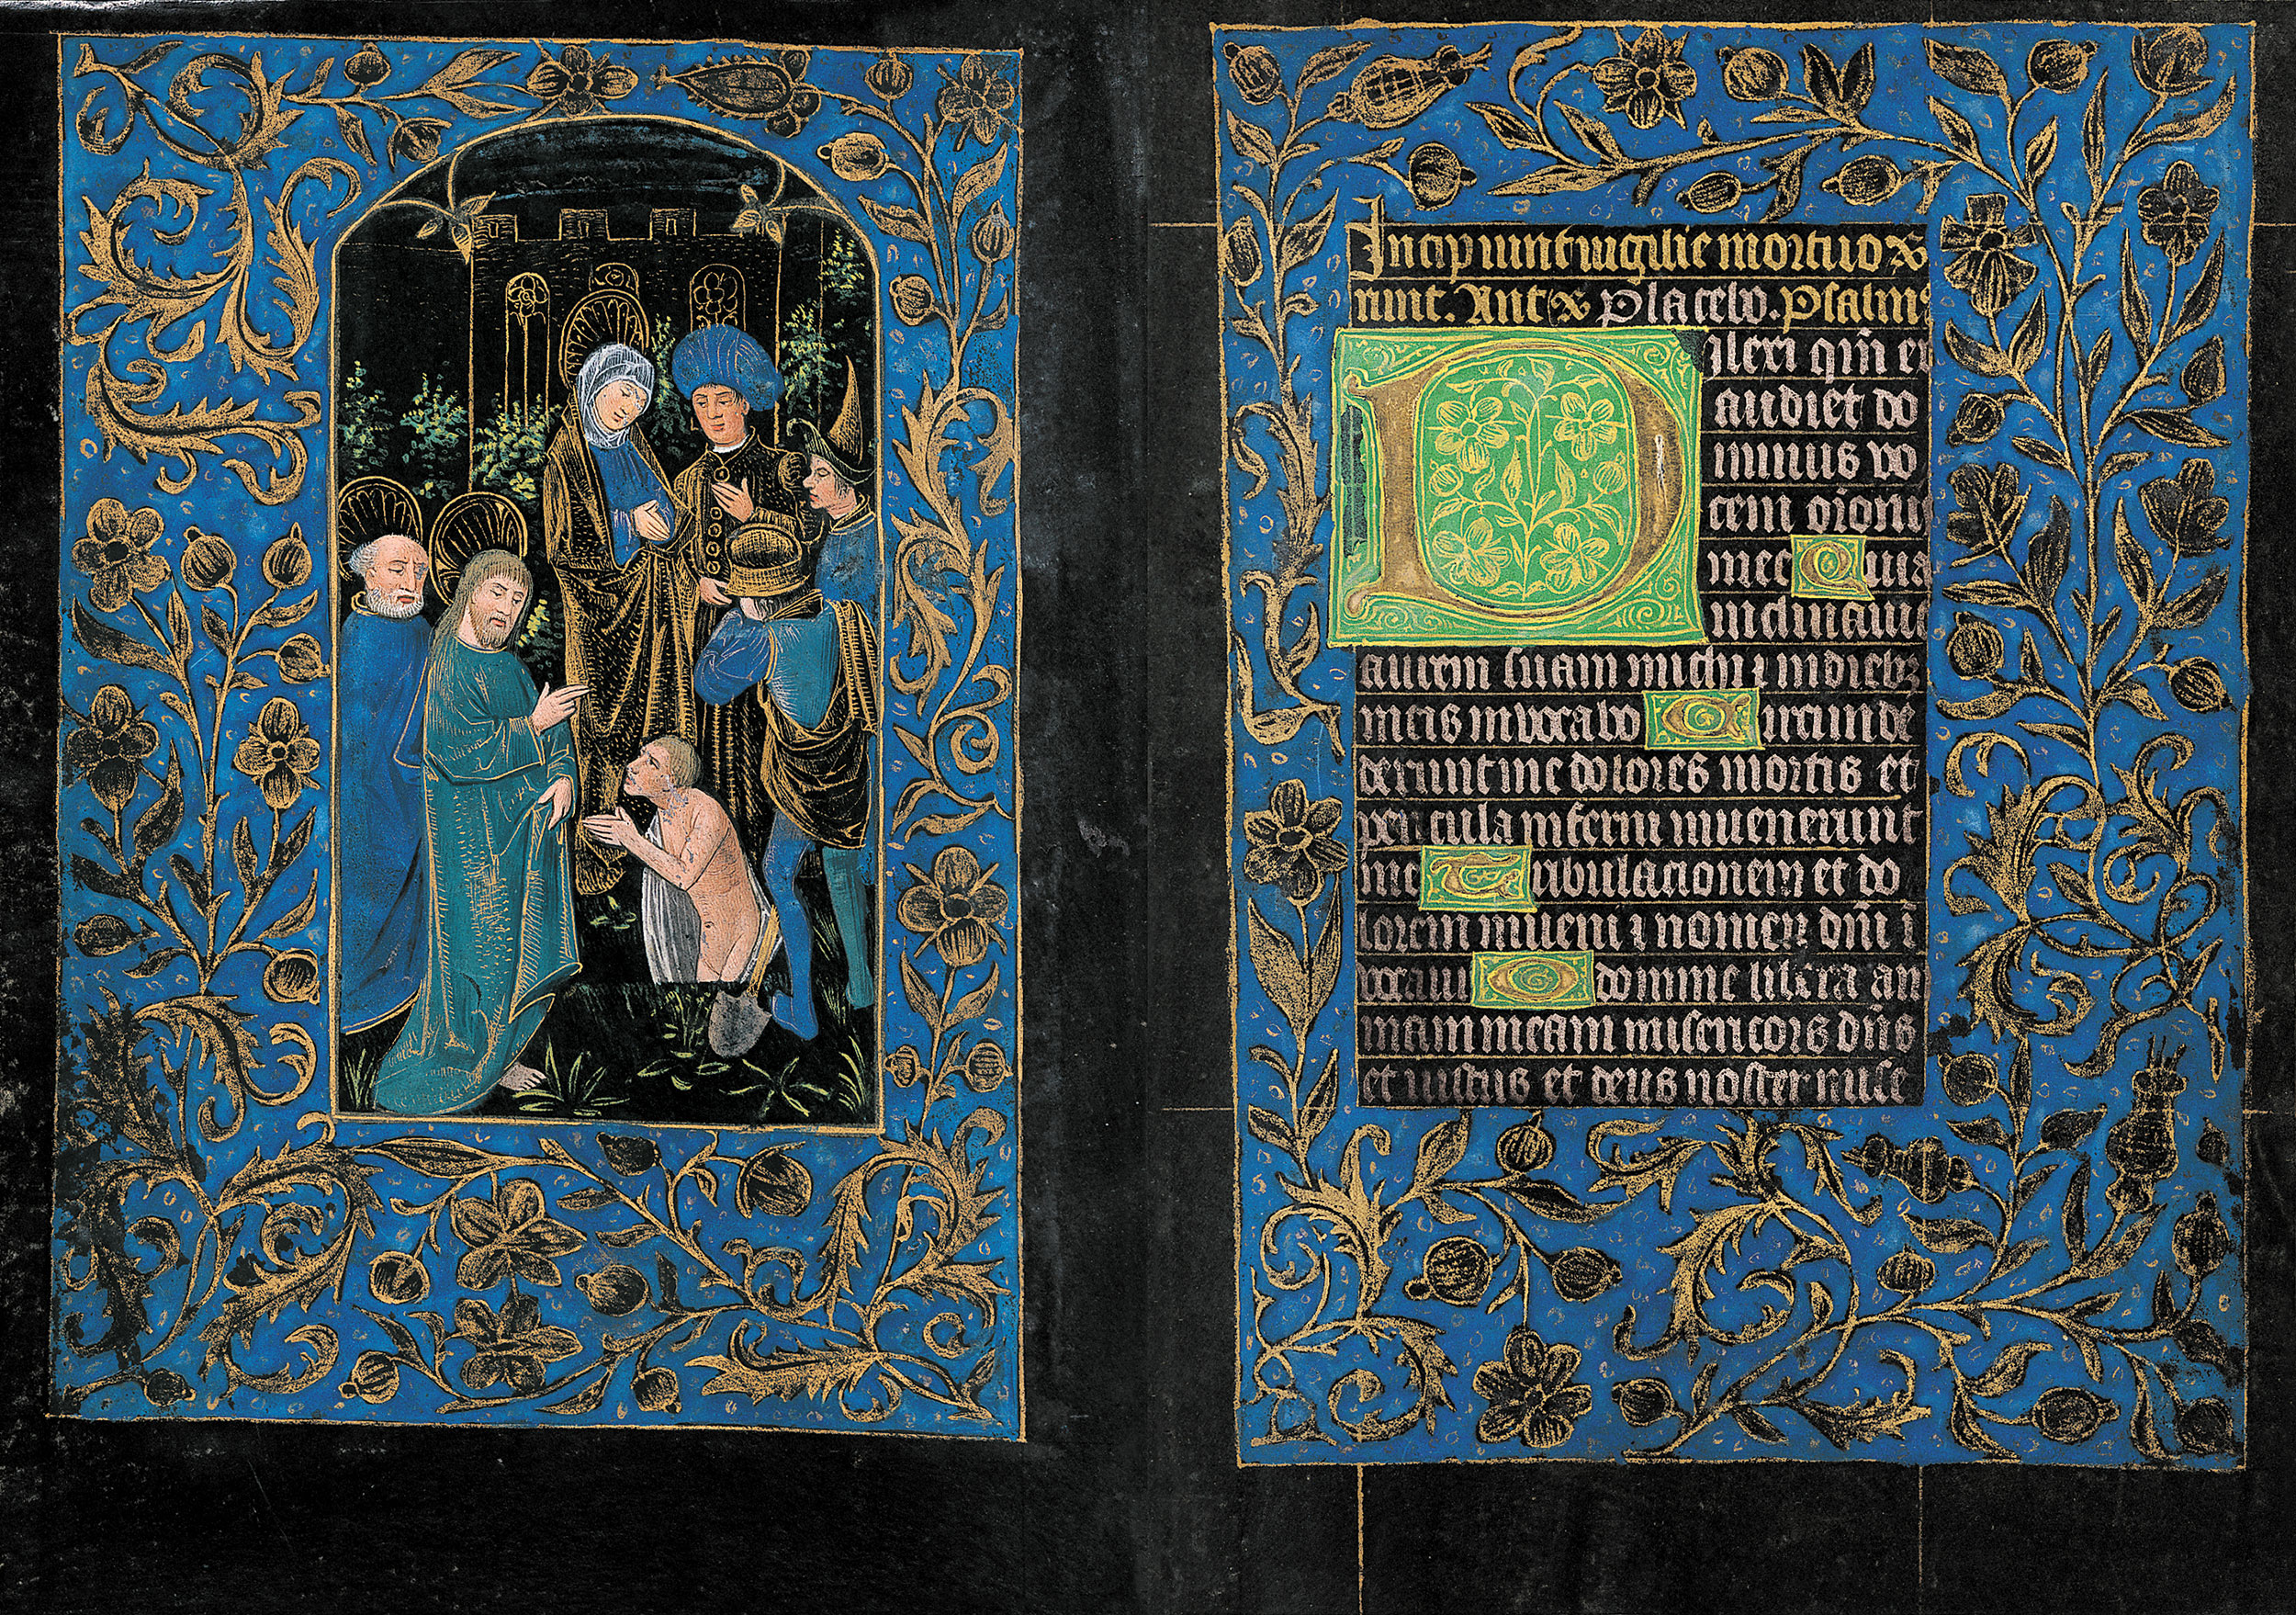 Incipiunt uigilie mortuoꝝ
runt. Antꝝ Placebo. Psalmꝰ
Dilexi qm̄ ex
audiet do
minus vo
cem or̄onis
mee Quia
inclinauit
aurem suam michi ⁊ in diebꝫ
meis inuocabo Circumde
derunt me dolores mortis et
pericula inferni inuenerunt
me Tribulacionem et do
lorem inueni ⁊ nomen dn̄i ī
uocaui O domine libera an
imam meam misericors dn̄s
et iustus et deus noster mise